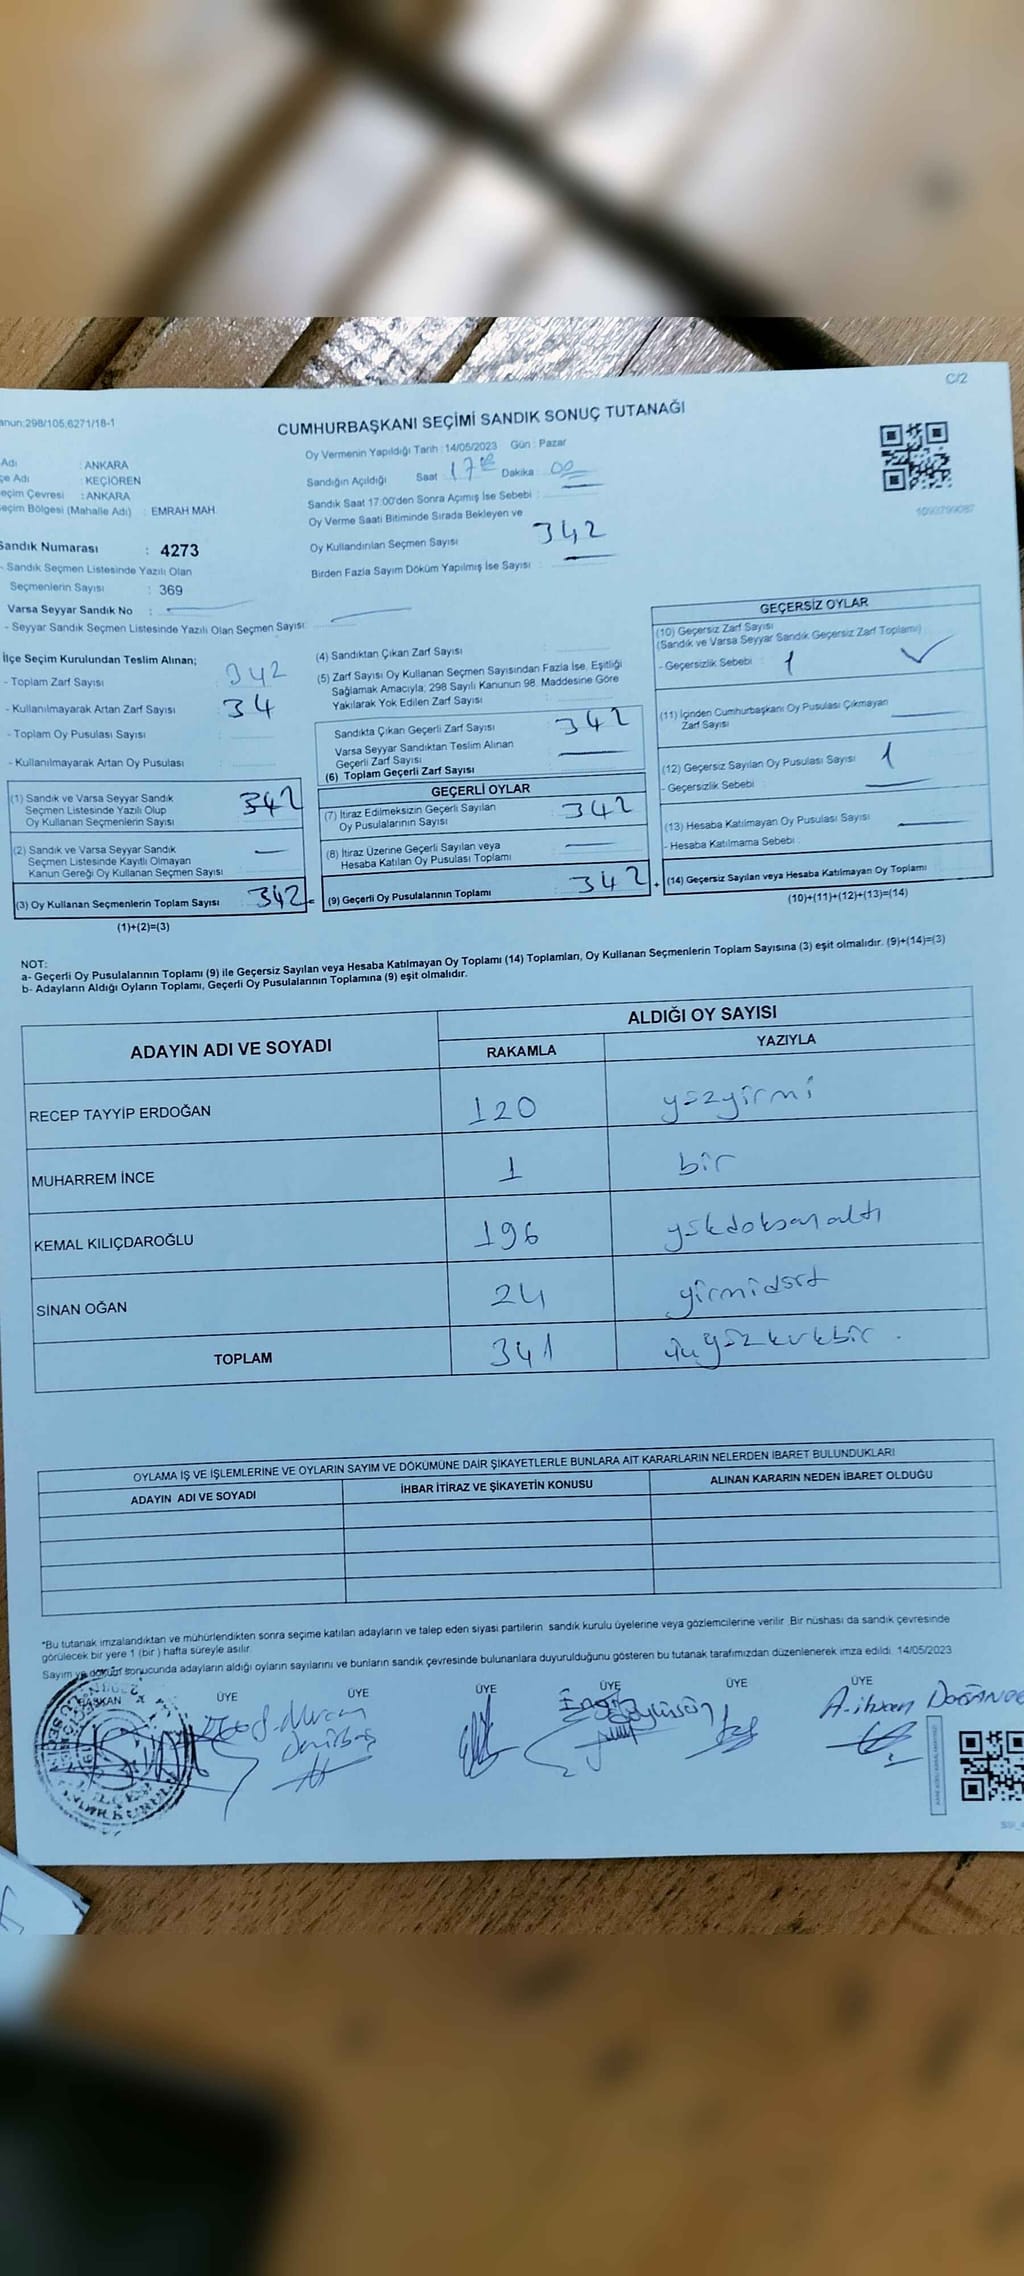 C/2
anun:298/105;6271/18-1
CUMHURBAŞKANI SEÇİMİ SANDIK SONUÇ TUTANAĞI
Adı : ANKARA
çe Adı : KEÇİÖREN
eçim Çevresi : ANKARA
eçim Bölgesi (Mahalle Adı) : EMRAH MAH.
Sandık Numarası : 4273
- Sandık Seçmen Listesinde Yazılı Olan
Seçmenlerin Sayısı : 369
Varsa Seyyar Sandık No :
- Seyyar Sandık Seçmen Listesinde Yazılı Olan Seçmen Sayısı:
Oy Vermenin Yapıldığı Tarih : 14/05/2023 Gün : Pazar
Sandığın Açıldığı Saat : 17 00 Dakika : 00
Sandık Saat 17:00'den Sonra Açımış İse Sebebi :
Oy Verme Saati Bitiminde Sırada Bekleyen ve
Oy Kullandırılan Seçmen Sayısı 342
Birden Fazla Sayım Döküm Yapılmış İse Sayısı :
1093799087
İlçe Seçim Kurulundan Teslim Alınan;
- Toplam Zarf Sayısı 342
- Kullanılmayarak Artan Zarf Sayısı : 34
- Toplam Oy Pusulası Sayısı :
- Kullanılmayarak Artan Oy Pusulası :
(1) Sandık ve Varsa Seyyar Sandık
Seçmen Listesinde Yazılı Olup
Oy Kullanan Seçmenlerin Sayısı 342
(2) Sandık ve Varsa Seyyar Sandık
Seçmen Listesinde Kayıtlı Olmayan
Kanun Gereği Oy Kullanan Seçmen Sayısı
(3) Oy Kullanan Seçmenlerin Toplam Sayısı 342 =
(1)+(2)=(3)
(4) Sandıktan Çıkan Zarf Sayısı :
(5) Zarf Sayısı Oy Kullanan Seçmen Sayısından Fazla İse, Eşitliği
Sağlamak Amacıyla; 298 Sayılı Kanunun 98. Maddesine Göre
Yakılarak Yok Edilen Zarf Sayısı :
Sandıkta Çıkan Geçerli Zarf Sayısı 342
Varsa Seyyar Sandıktan Teslim Alınan
Geçerli Zarf Sayısı
(6) Toplam Geçerli Zarf Sayısı
GEÇERLİ OYLAR
(7) İtiraz Edilmeksizin Geçerli Sayılan
Oy Pusulalarının Sayısı : 342
(8) İtiraz Üzerine Geçerli Sayılan veya
Hesaba Katılan Oy Pusulası Toplamı
(9) Geçerli Oy Pusulalarının Toplamı 342 +
GEÇERSİZ OYLAR
(10) Geçersiz Zarf Sayısı
(Sandık ve Varsa Seyyar Sandık Geçersiz Zarf Toplamı)
- Geçersizlik Sebebi : 1
(11) İçinden Cumhurbaşkanı Oy Pusulası Çıkmayan
Zarf Sayısı
(12) Geçersiz Sayılan Oy Pusulası Sayısı : 1
- Geçersizlik Sebebi :
(13) Hesaba Katılmayan Oy Pusulası Sayısı :
- Hesaba Katılmama Sebebi :
(14) Geçersiz Sayılan veya Hesaba Katılmayan Oy Toplamı
(10)+(11)+(12)+(13)=(14)
NOT:
a- Geçerli Oy Pusulalarının Toplamı (9) ile Geçersiz Sayılan veya Hesaba Katılmayan Oy Toplamı (14) Toplamları, Oy Kullanan Seçmenlerin Toplam Sayısına (3) eşit olmalıdır. (9)+(14)=(3)
b- Adayların Aldığı Oyların Toplamı, Geçerli Oy Pusulalarının Toplamına (9) eşit olmalıdır.
ADAYIN ADI VE SOYADI
ALDIĞI OY SAYISI
RAKAMLA YAZIYLA
RECEP TAYYİP ERDOĞAN 120 yüzyirmi
MUHARREM İNCE 1 bir
KEMAL KILIÇDAROĞLU 196 yükdoksanaltı
SİNAN OĞAN 24 yirmidört
TOPLAM 341 üçyüzkırkbir.
OYLAMA İŞ VE İŞLEMLERİNE VE OYLARIN SAYIM VE DÖKÜMÜNE DAİR ŞİKAYETLERLE BUNLARA AİT KARARLARIN NELERDEN İBARET BULUNDUKLARI
ADAYIN ADI VE SOYADI İHBAR İTİRAZ VE ŞİKAYETİN KONUSU ALINAN KARARIN NEDEN İBARET OLDUĞU
*Bu tutanak imzalandıktan ve mühürlendikten sonra seçime katılan adayların ve talep eden siyasi partilerin sandık kurulu üyelerine veya gözlemcilerine verilir. Bir nüshası da sandık çevresinde
görülecek bir yere 1 (bir) hafta süreyle asılır.
Sayım ve döküm sonucunda adayların aldığı oyların sayılarını ve bunların sandık çevresinde bulunanlara duyurulduğunu gösteren bu tutanak tarafımızdan düzenlenerek imza edildi. 14/05/2023
BAŞKAN ÜYE ÜYE ÜYE ÜYE ÜYE ÜYE
A.ihsan